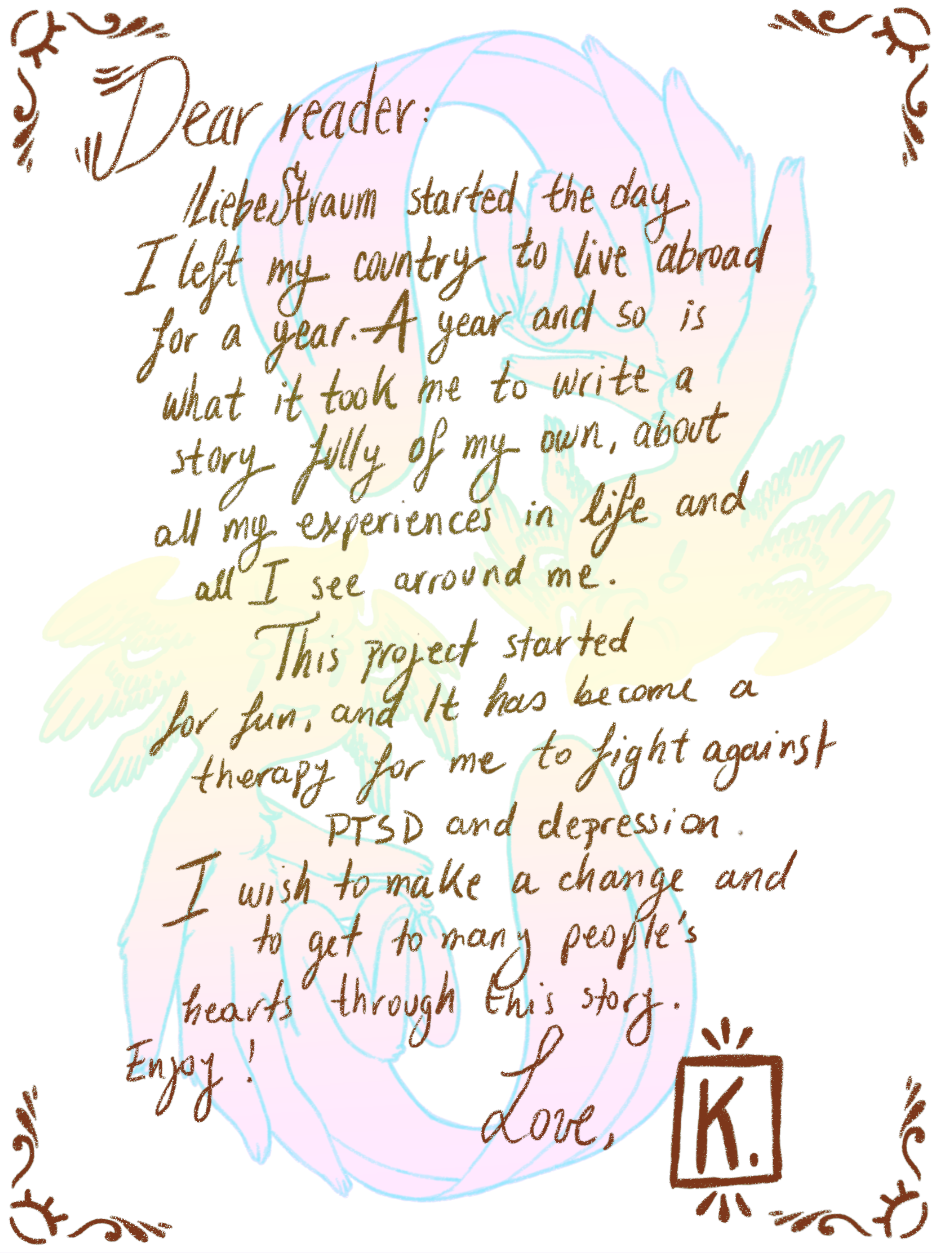 Dear reader:
LiebeStraum started the day
I left my country to live abroad
for a year. A year and so is
what it took me to write a
story fully of my own, about
all my experiences in life and
all I see arround me.
This project started
for fun, and It has become a
therapy for me to fight against
PTSD and depression.
I wish to make a change and
to get to many people's
hearts through this story.
Enjoy!
Love,
K.